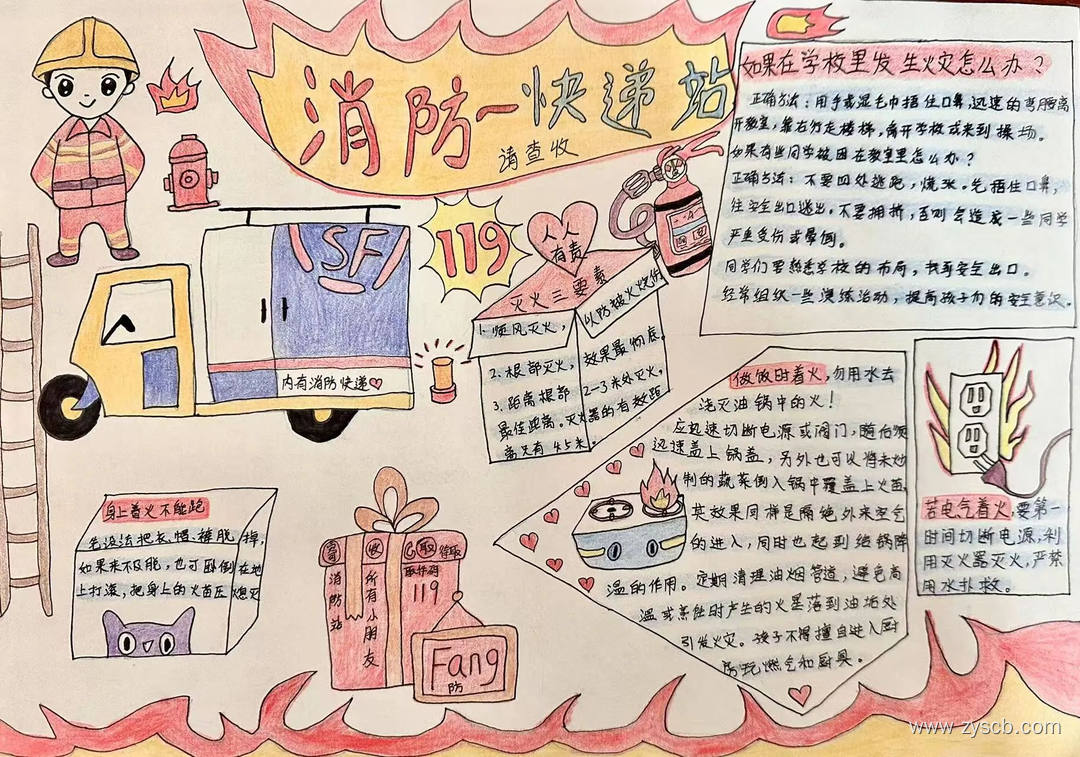 消防一快递站
请查收
如果在学校里发生火灾怎么办？
正确方法：用手或湿毛巾捂住口鼻，迅速的弯腰离
开教室，靠右行走楼梯，离开学校或来到操场。
如果有些同学被困在教室里怎么办？
正确方法：不要四处逃跑，慌张。先捂住口鼻，
往安全出口逃出，不要拥挤，否则会造成一些同学
严重受伤或晕倒。
同学们要熟悉学校的布局，找到安全出口。
经常组织一些演练活动，提高孩子们的安全意识。
119
人人
有责
SF
内有消防快递
灭火三要素
1.顺风灭火，以防被火烧伤
2.根部灭火，效果最彻底。
3.距离根部2-3米处灭火，
最佳距离。灭火器的有效距
离只有4.5米。
做饭时着火，勿用水去
浇灭油锅中的火！
应迅速切断电源或阀门，随后须
迅速盖上锅盖，另外也可以将未炒
制的蔬菜倒入锅中覆盖上火苗，
其效果同样是隔绝外来空气
的进入，同时也起到给锅降
温的作用。定期清理油烟管道，避免高
温或烹饪时产生的火星落到油垢处
引发火灾。孩子不得擅自进入厨
房玩燃气和厨具。
若电气着火，要第一
时间切断电源，利
用灭火器灭火，严禁
用水扑救。
身上着火不能跑
先设法把衣、帽、裤脱掉，
如果来不及脱，也可卧倒在地
上打滚，把身上的火苗压熄灭
寄
消防站
收
所有小朋友
取
待取
取件码
119
Fang
防
www.zyscb.com